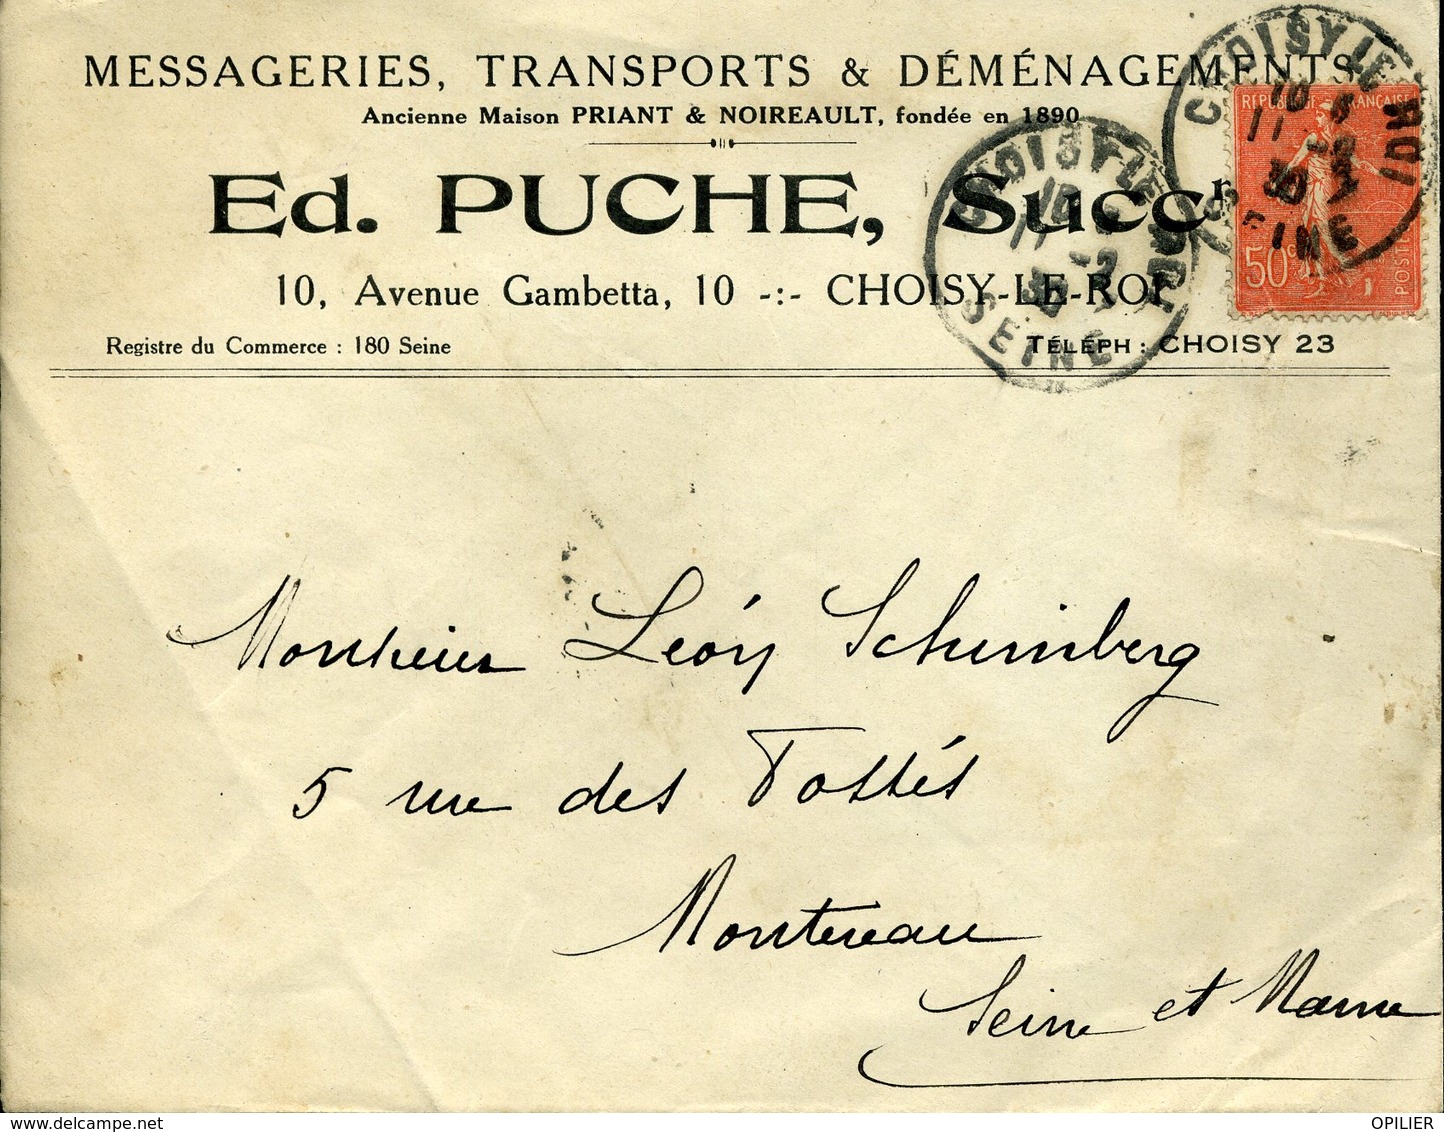 MESSAGERIES, TRANSPORTS & DÉMÉNAGEMENTS
Ancienne Maison PRIANT & NOIREAULT, fondée en 1890
Ed. PUCHE, Succr
10, Avenue Gambetta, 10 -:- CHOISY-LE-ROI
Registre du Commerce : 180 Seine
TÉLÉPH : CHOISY 23
CHOISY LE ROI
SEINE
CHOISY LE ROI
SEINE
REPUBLIQUE FRANÇAISE
50c
POSTES
Monsieur Léon Schimberg
5 rue des Fossés
Montereau
Seine et Marne
OPILIER